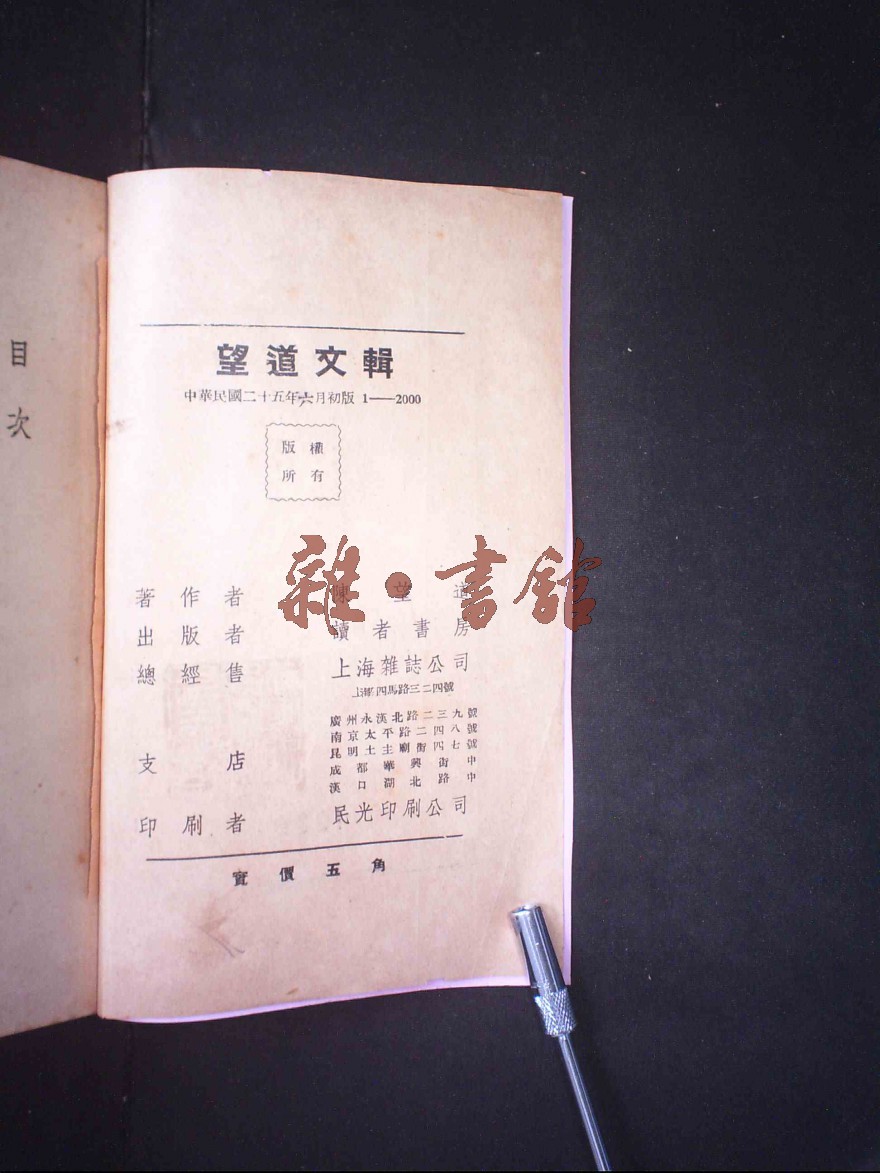 目次
望道文輯
中華民國二十五年六月初版 1——2000
版權
所有
著作者 陳望道
出版者 讀者書房
總經售 上海雜誌公司
上海四馬路三二四號
廣州永漢北路二三九號
南京太平路二四八號
昆明土主廟街四七號
支店 成都華興街中
漢口湖北路中
印刷者 民光印刷公司
實價五角
雜·書館